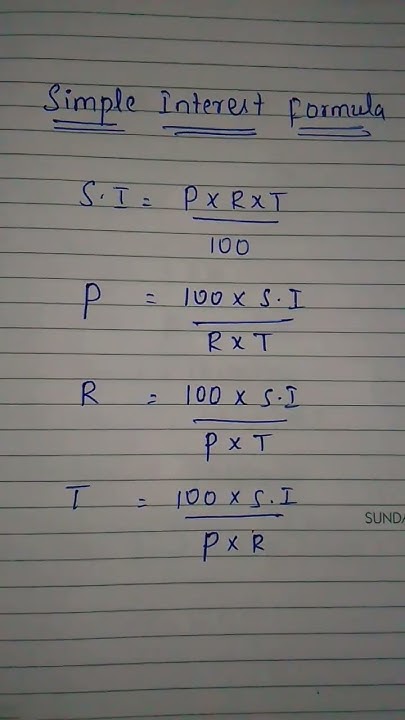 Simple Interest Formula
S.I = P x R x T
100
P = 100 x S.I
R x T
R = 100 x S.I
P x T
T = 100 x S.I
SUNDA
P x R